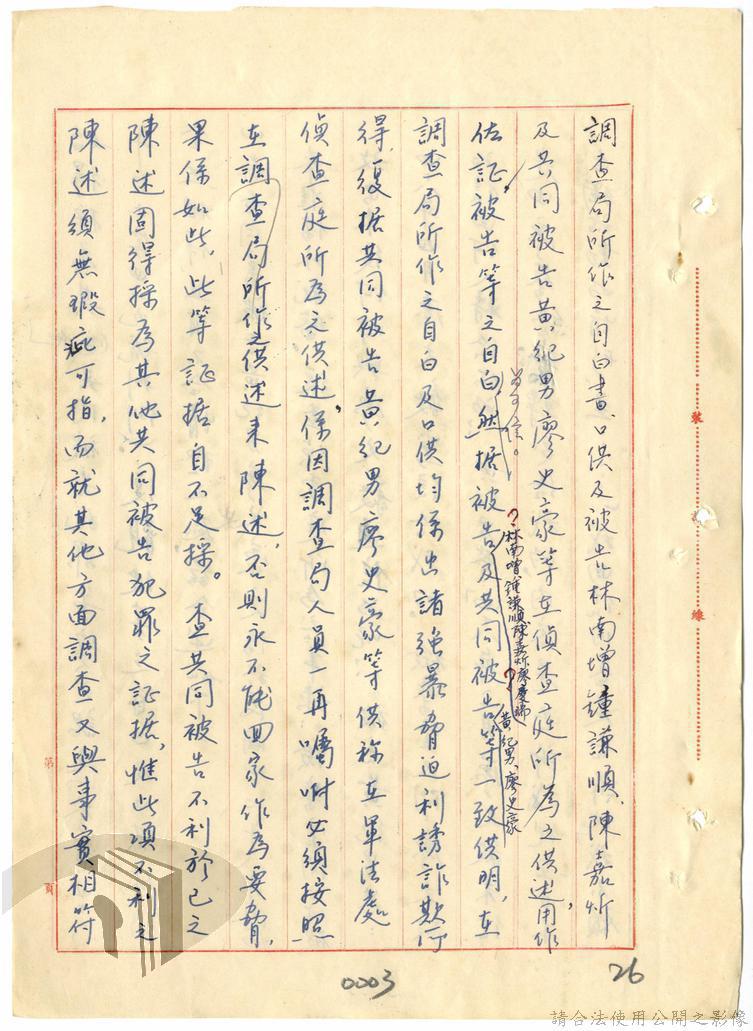 調查局所作之自白書、口供及被告林南增鍾謙順、陳嘉炘
及共同被告黃紀男廖史豪等在偵查庭所為之供述用作
佐証被告等之自白
為可信。
然据被告及共同被告等一致供明，在
林南增鍾謙順陳嘉炘廖慶瑞
黃紀男、廖史豪
調查局所作之自白及口供均係出諸強暴脅迫利誘詐欺所
得，復据共同被告黃紀男廖史豪等供称在軍法處
偵查庭所為之供述，係因調查局人員一再囑咐必須按照
在調查局所作之供述来陳述，否則永不能回家作為要脅，
果係如此，此等証据自不足採。查共同被告不利於己之
陳述固得採為其他共同被告犯罪之証据，惟此項不利之
陳述須無瑕疵可指，而就其他方面調查又與事實相符
裝
線
第
頁
0003
26
請合法使用公開之影像